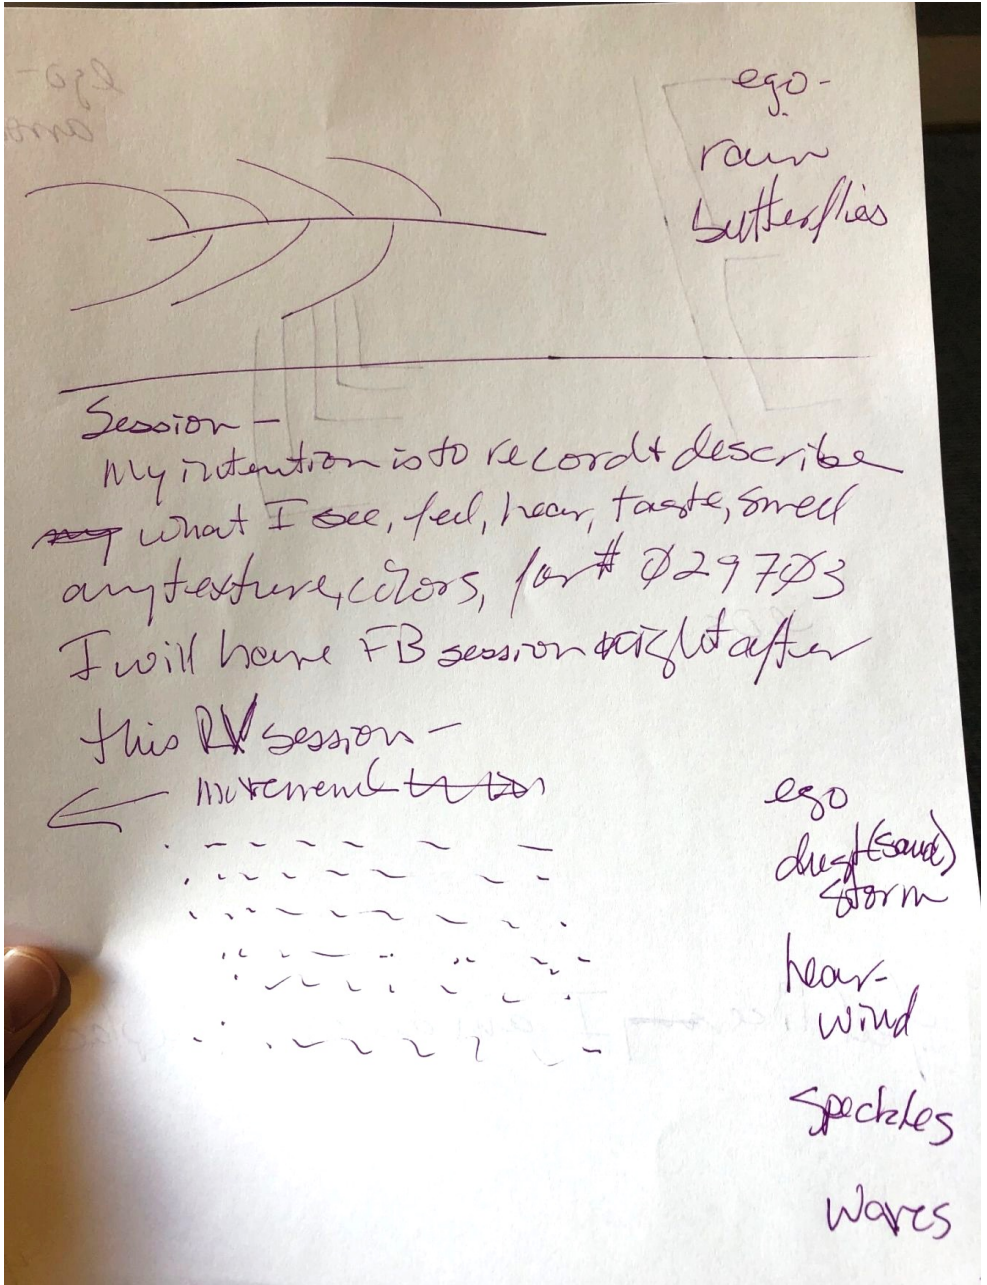 ego-
rain
butterflies
Session -
My intention is to record + describe
what I see, feel, hear, taste, smell
any texture, colors, for # Ø297Ø3
I will have FB session right after
this RV session -
movement
ego
dust (sand)
storm
hear-
wind
speckles
waves